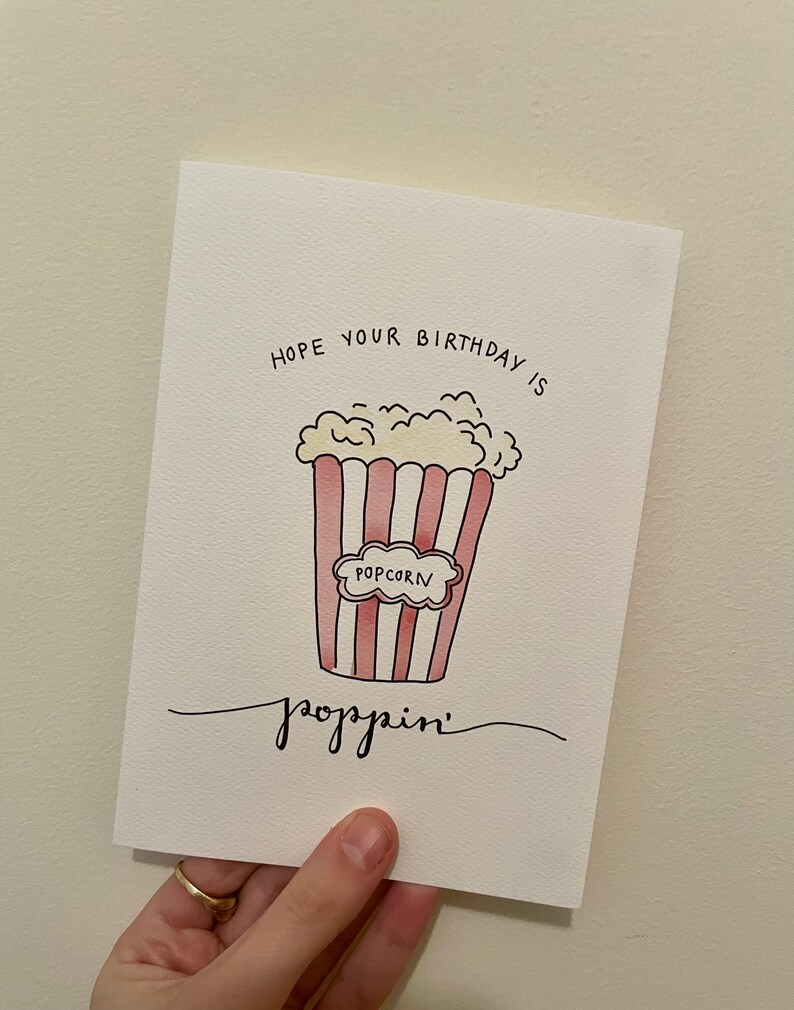 HOPE YOUR BIRTHDAY IS
POPCORN
poppin'